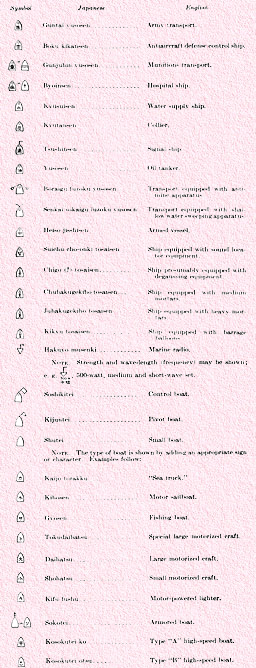 Symbol Japanese English
Guntai yusosen Army transport.
Boku kikansen Antiaircraft defense control ship.
Gunjuhin yusosen Munitions transport.
Byoinsen Hospital ship.
Kyusuisen Water supply ship.
Kyutansen Collier.
Tsushinsen Signal ship.
Yusosen Oil tanker.
Transport equipped with
apparatus.
Transport equipped with shal-
low water sweeping apparatus.
Heiso jisshisen Armed vessel.
Suichu choonki tosaisen Ship equipped with sound loca-
tor equipment.
tosaisen Ship presumably equipped with
degaussing equipment.
Chuhakugekiho tosaisen Ship equipped with medium
mortars.
Juhakugekiho tosaisen Ship equipped with heavy mor-
tars.
Kikyu tosaisen Ship equipped with barrage
balloons.
Hakuyo musenki Marine radio.
NOTE. Strength and wavelength (frequency) may be shown;
e. g. 500-watt, medium and short-wave set.
Soshikitei Control boat.
Kijuntei Pivot boat.
Shotei Small boat.
NOTE. The type of boat is shown by adding an appropriate sign
or character. Examples follow:
Kaijo torakku "Sea truck."
Kihansen Motor sailboat.
Gyosen Fishing boat.
Tokudaihatsu Special large motorized craft.
Daihatsu Large motorized craft.
Shohatsu Small motorized craft.
Motor-powered lighter.
Sokotei Armored boat.
Kosokutei ko Type "A" high-speed boat.
Kosokutei otsu Type "B" high-speed boat.